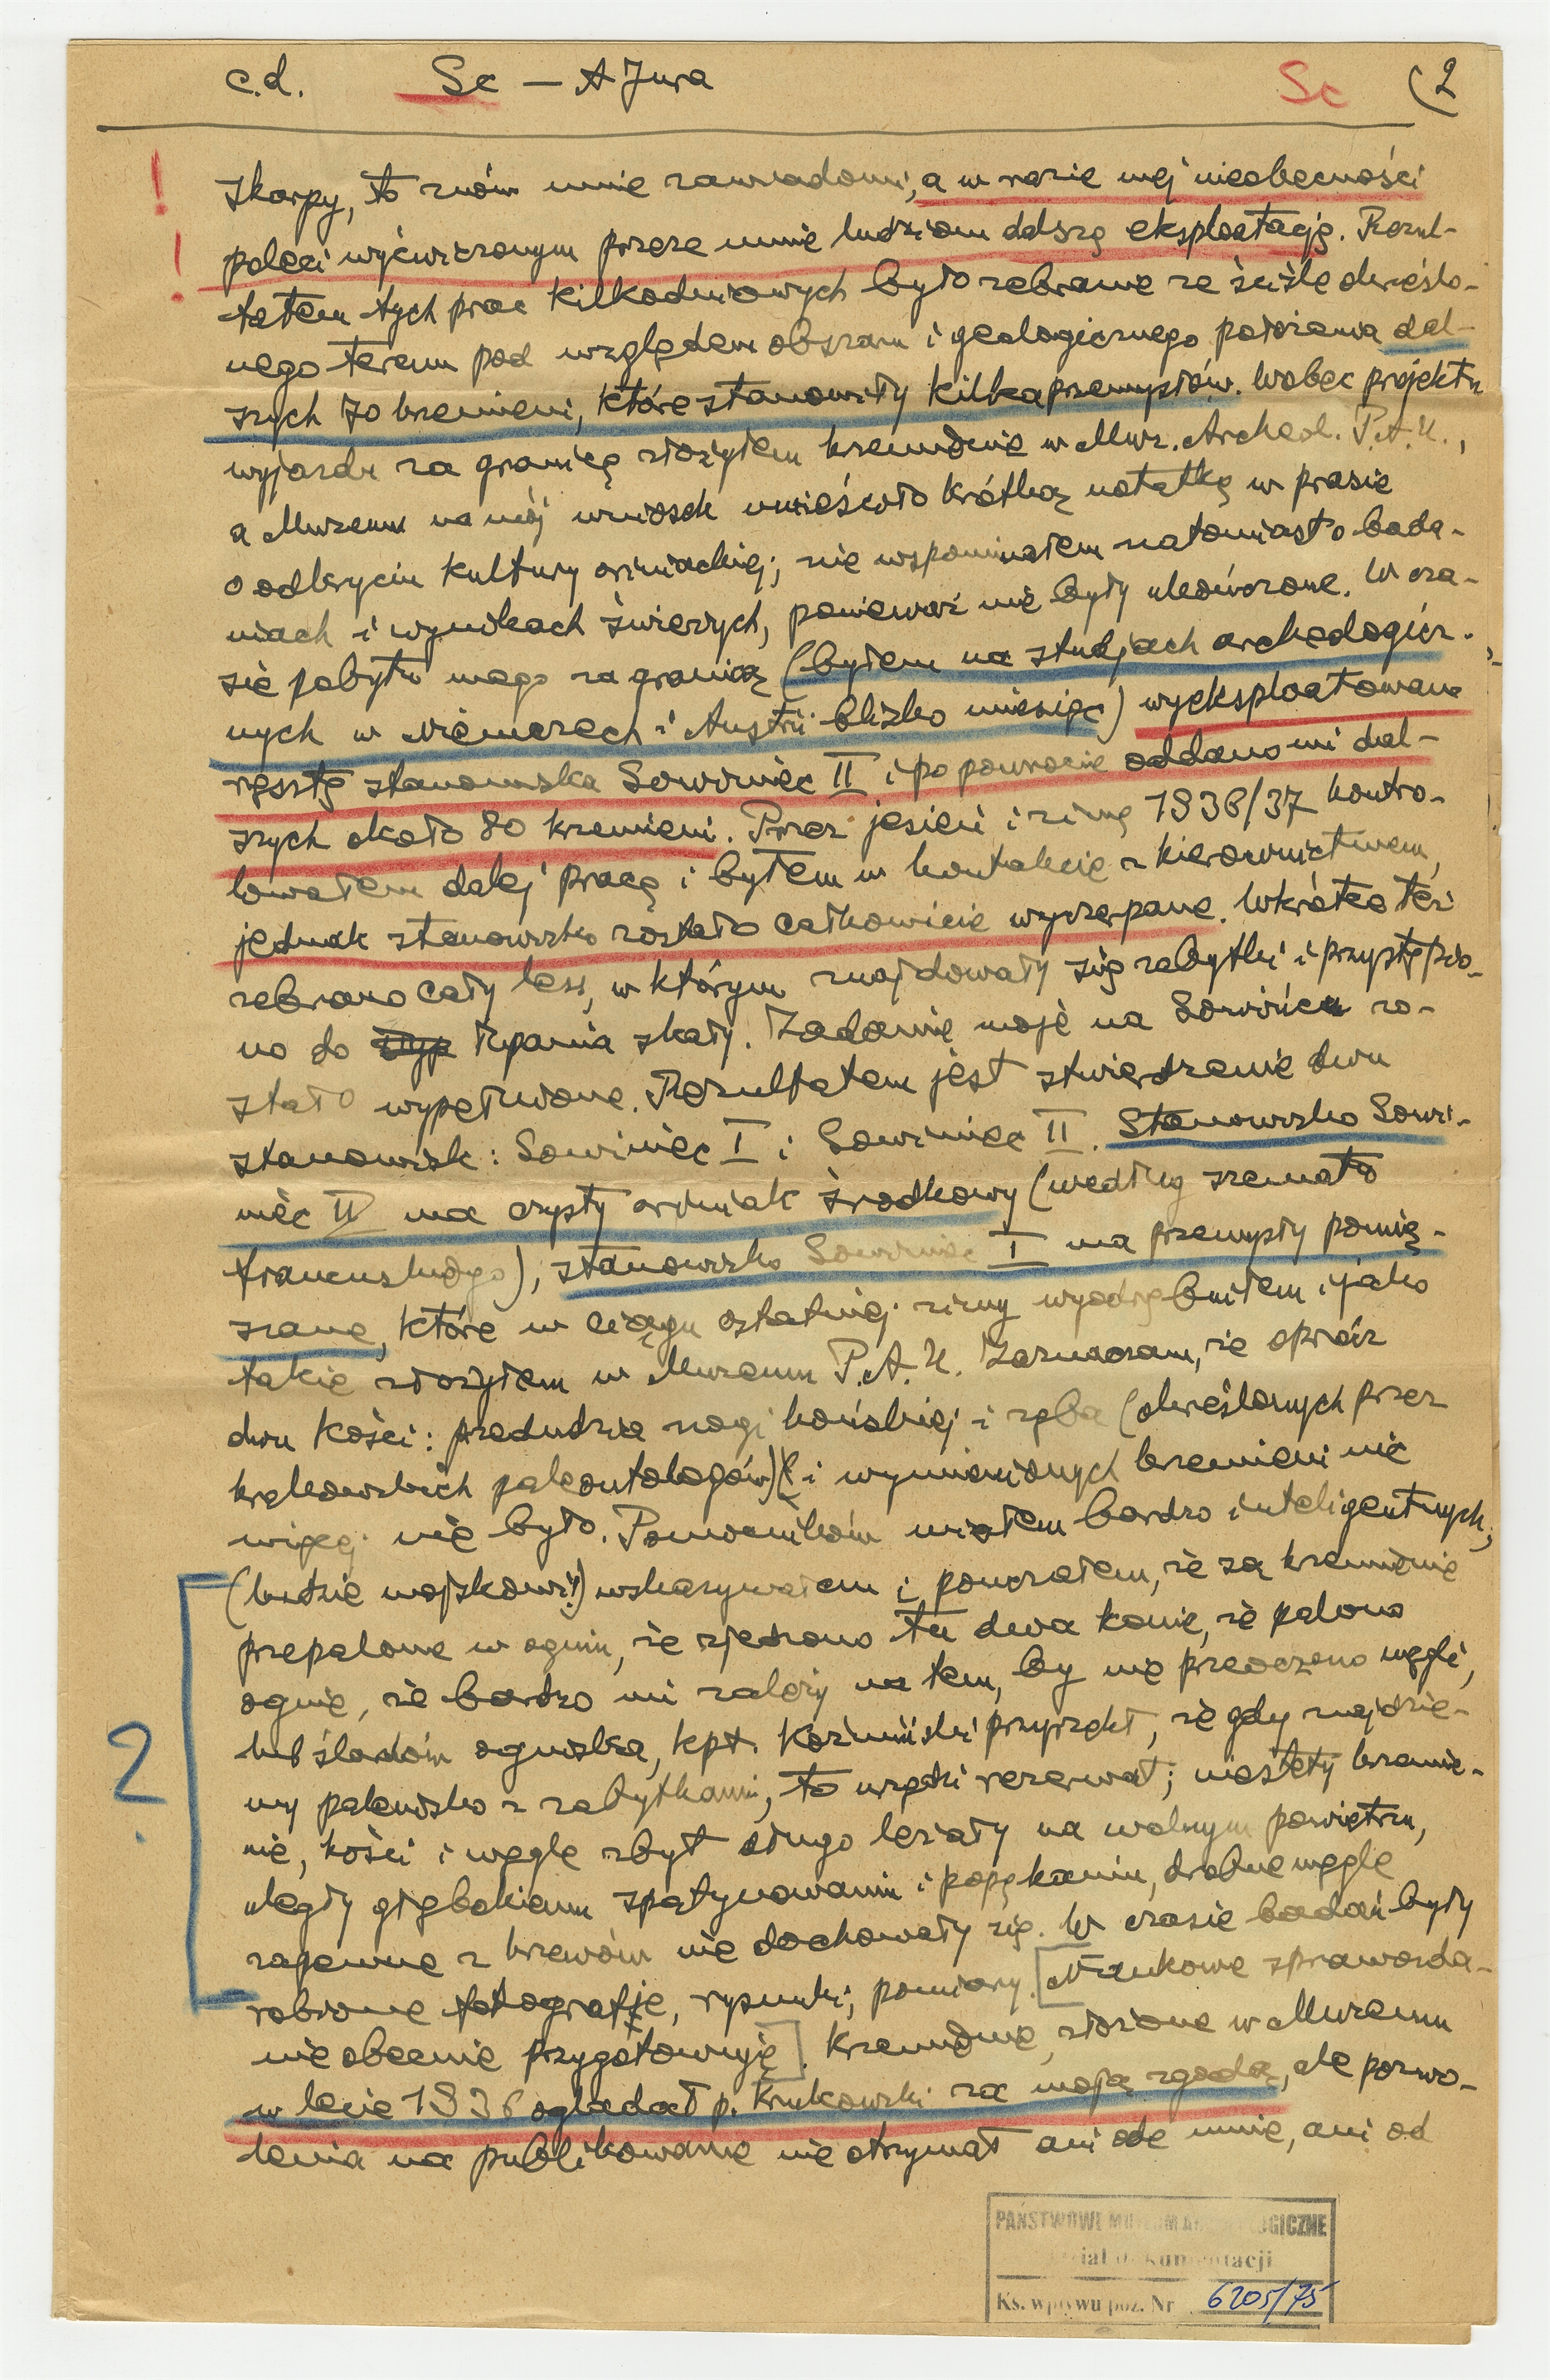 c.d. Sc — A Jura Sc (2
! skarpy, to znów mnie zawiadomi, a w razie mej nieobecności
! poleci wyćwiczonym przeze mnie ludziom dalszą eksploatację. Rezul-
tatem tych prac kilkodniowych było zebranie ze ściśle określo-
nego terenu pod względem obszaru i geologicznego położenia dal-
szych 70 krzemieni, które stanowiły kilka przemysłów. Wobec projektu
wyjazdu za granicę złożyłem krzemienie w Muz. Archeol. P.A.U.,
a Muzeum na mój wniosek umieściło krótką notatkę w prasie
o odkryciu kultury oriniackiej; nie wspominałem natomiast o bada-
niach i wynikach świeżych, ponieważ nie były ukończone. W cza-
sie pobytu mego za granicą (byłem na studjach archeologicz-
nych w Niemczech i Austrii blizko miesiąc) wyeksploatowano
resztę stanowiska Sowiniec II i po powrocie oddano mi dal-
szych około 80 krzemieni. Przez jesień i zimę 1936/37 kontro-
lowałem dalej pracę i byłem w kontakcie z kierownictwem,
jednak stanowisko zostało całkowicie wyczerpane. Wkrótce też
zebrano cały less, w którym znajdowały się zabytki i przystąpio-
no do łupania skały. Zadanie moje na Sowińcu zo-
stało wypełnione. Rezultatem jest stwierdzenie dwu
stanowisk: Sowiniec I i Sowiniec II. Stanowisko Sowi-
niec II ma czysty oriniak środkowy (według szematu
francuskiego), stanowisko Sowiniec I ma przemysły pomię-
szane, które w ciągu ostatniej zimy wyodrębniłem i jako
takie złożyłem w Muzeum P.A.U. Zaznaczam, że oprócz
dwu kości: przedudzia nogi końskiej i zęba (określonych przez
krakowskich paleontologów) i wymienionych krzemieni nic
więcej nie było. Pomocników miałem bardzo inteligentnych,
(ludzie wojskowi!) wskazywałem i pouczałem, że są krzemienie
przepalone w ogniu, że zjedzono tu dwa konie, że palono
ognie, że bardzo mi zależy na tem, by nie przeoczono węgli,
? lub śladów ogniska, kpt. Koźmiński przyrzekł, że gdy znajdzie-
my palenisko z zabytkami, to urządzi rezerwat; niestety krzemie-
nie, kości i węgle zbyt długo leżały na wolnym powietrzu,
uległy głębokiemu spatynowaniu i popękaniu, drobne węgle
zapewne z krzewów nie dochowały się. W czasie badań były
robione fotografje, rysunki, pomiary. [Naukowe sprawozda-
nie obecnie przygotowuję]. Krzemienie, złożone w Muzeum
w lecie 1936 oglądał p. Krukowski za moją zgodą, ale pozwo-
lenia na publikowanie nie otrzymał ani ode mnie, ani od
PAŃSTWOWE MUZEUM ARCHEOLOGICZNE
Dział Dokumentacji
Ks. wpływu poz. Nr 6205/75